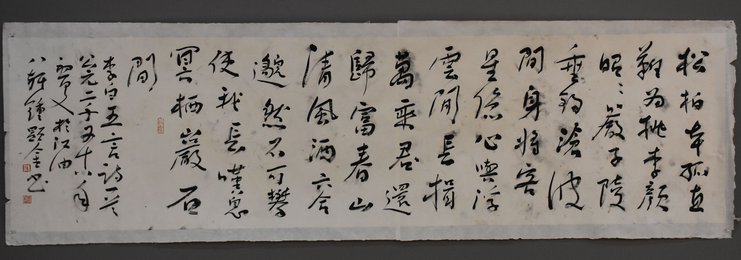 松柏本孤直
難为桃李顏
昭〻嚴子陵
垂釣滄波
間身將客
星隱心與浮
雲閒長揖
萬乘君還
歸富春山
清風洒六合
邈然不可攀
使我長嘆息
冥栖巖石
間
李白五言詩一首
公元二千又十八年
初夏於江油
八鍾顯金書